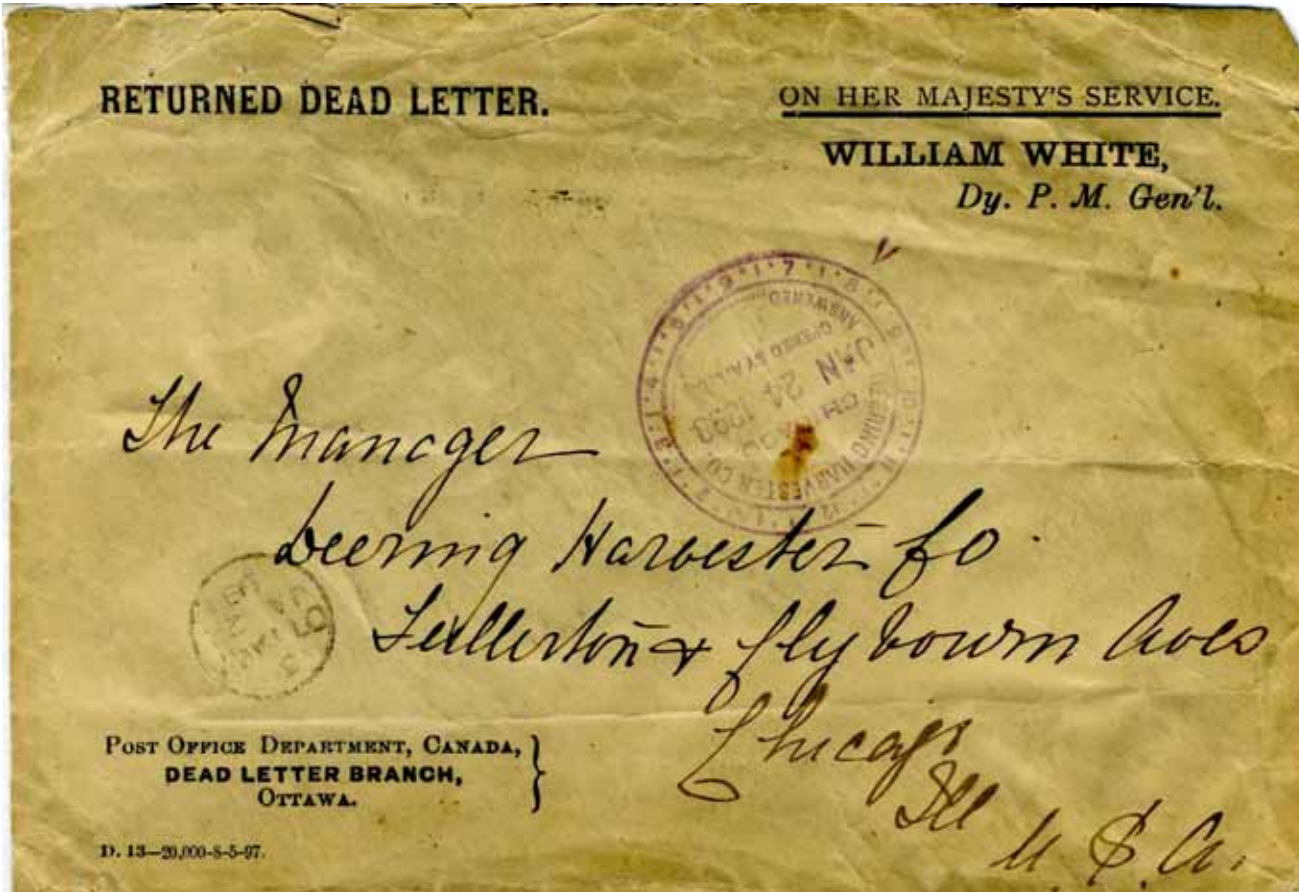 RETURNED DEAD LETTER.
ON HER MAJESTY'S SERVICE.
WILLIAM WHITE,
Dy. P. M. Gen'l.
DEERING HARVESTER CO.
CHICAGO
JAN 24 1898
OPENED BY
ANSWERED
The Manager
Deering Harvester Co.
Fullerton & Clybourn Aves
Chicago
Ill
U. S. A.
POST OFFICE DEPARTMENT, CANADA,
DEAD LETTER BRANCH,
OTTAWA.
D. 13—20,000-8-5-97.